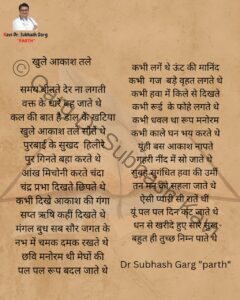 Kavi Dr. Subhash Garg
"PARTH"
खुले आकाश तले
समय बीतते देर ना लगती
वक्त के धारे बह जाते थे
कल की बात है डाल के खटिया
खुले आकाश तले सोते थे
पुरबाई के सुखद हिलोरे
पुर गिनते बहा करते थे
आंख मिचोनी करते चंदा
चंद्र प्रभा दिखते छिपते थे
कभी दिखे आकाश की गंगा
सप्त ऋषि कहीं दिखते थे
मंगल बुध सब सौर जगत के
नभ में चमक दमक रखते थे
छवि मनोरम थी मेघों की
पल पल रूप बदल जाते थे
कभी लगें थे ऊंट की मानिंद
कभी गज बड़े वृहत लगते थे
कभी हवा में किले से दिखते
कभी रूई के फोहे लगते थे
कभी धवल था रूप मनोरम
कभी काले घन भय करते थे
यूंही बस आकाश मापते
गहरी नींद में सो जाते थे
सुबह सुगंधित हवा की उर्मी
तन मन को सहला जाते थे
ऐसी प्यारी सी रातें थीं
यूं पल पल दिन कट जाते थे
धन से खरीदे हुए सारे सुख
बहुत ही तुच्छ निम्न पाते थे
Dr Subhash Garg "parth"